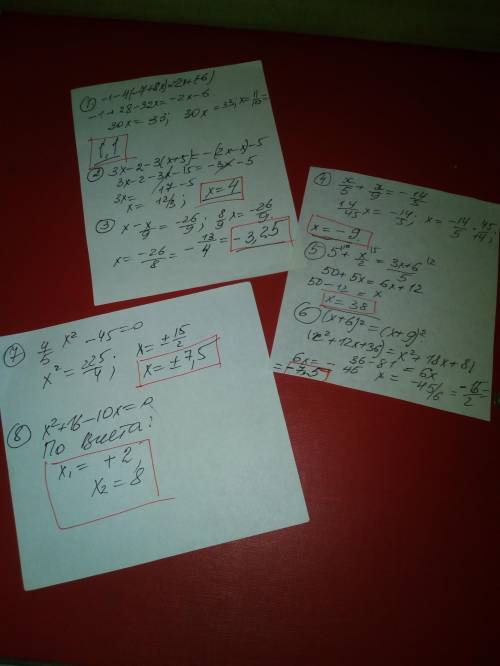 ① -1-4(-7+8x)=-2x+(-6)
-1+28-32x=-2x-6
30x=33; 30x=33, x=11/10=
1,1
② 3x-2-3(x+5)=-(2x-x)-5
3x-2-3x-15=-3x-5
3x=17-5
x=12/3; x=4
③ x-x/9=-26/9; 8/9x=-26/9.
x=-26/8=-13/4=-3,25
④ x/5+x/9=-14/5
14/45x=-14/5; x=-14/5·45/14;
x=-9.
⑤ 5+x/2=3x+6/5
50+5x=6x+12
50-12=x
x=38
⑥ (x+6)²=(x+9)²
(x²+12x+36)=x²+18x+81
36-81=6x
6x=-45 x=-45/6=-15/2
=-7,5
⑦ 4/5x²-45=0
x²=225/4; x=±15/2
x=±7,5
⑧ x²+16-10x=0
По Виета:
x₁=+2,
x₂=8